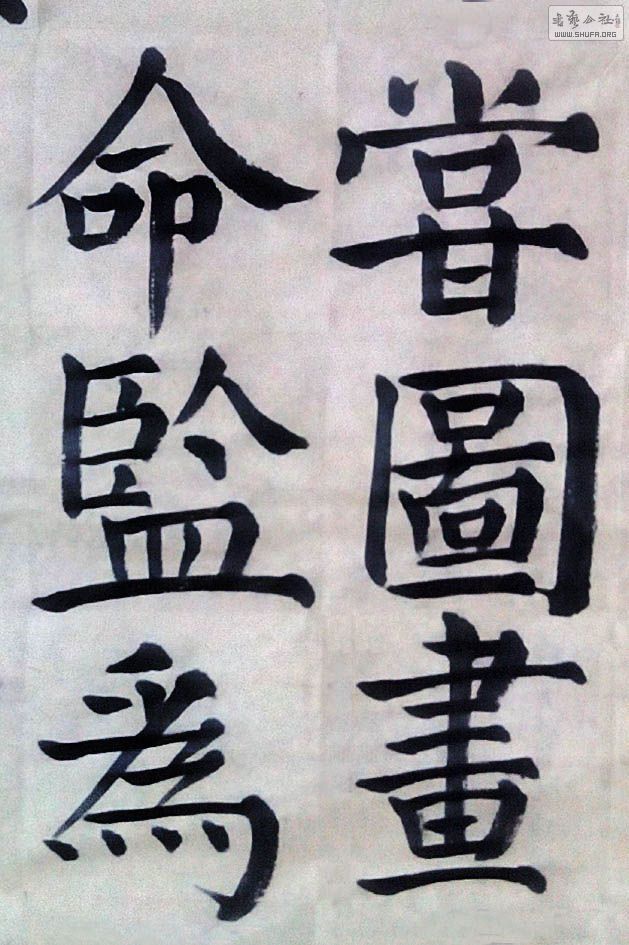 甞圖畫
命監爲
书艺公社
WWW.SHUFA.ORG